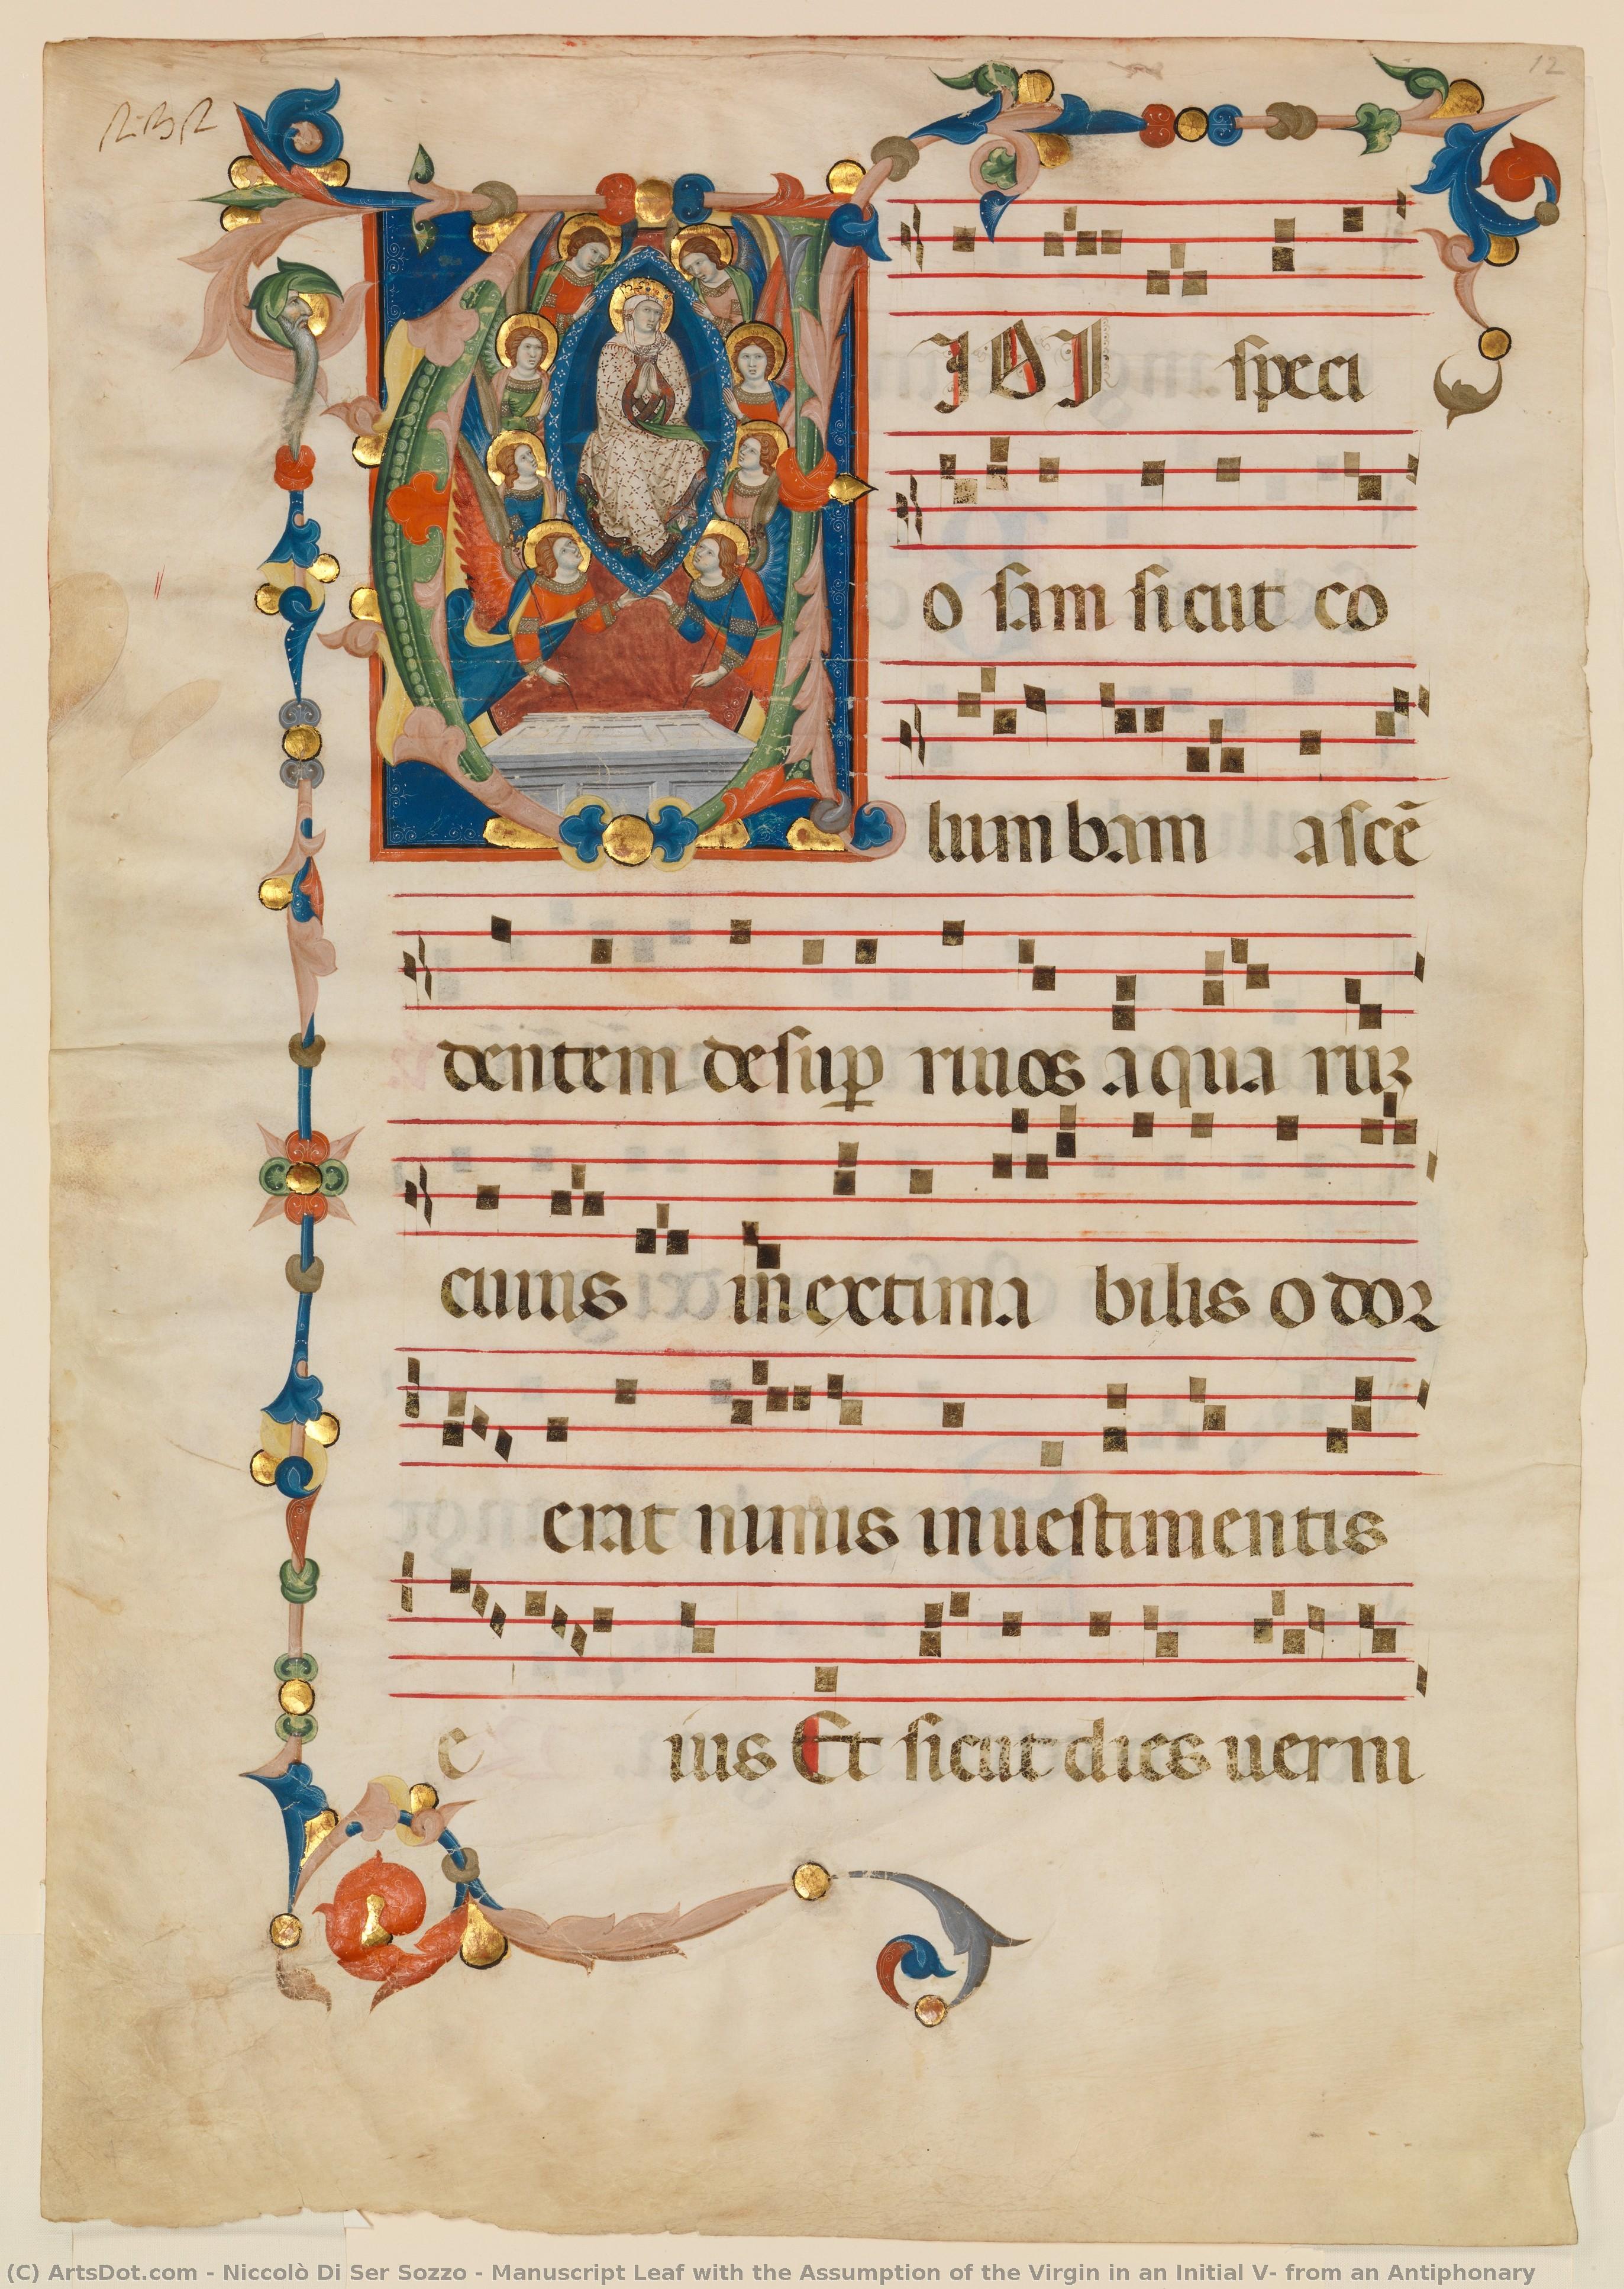 12
VIDI speci
o sam sicut co
lum bam ascē
dentem desuꝑ riuos aqua ruꝫ
cuius in extima bilis odor
erat nimis inuestimentis
e ius Et sicut dies uerni
(C) ArtsDot.com - Niccolò Di Ser Sozzo - Manuscript Leaf with the Assumption of the Virgin in an Initial V- from an Antiphonary